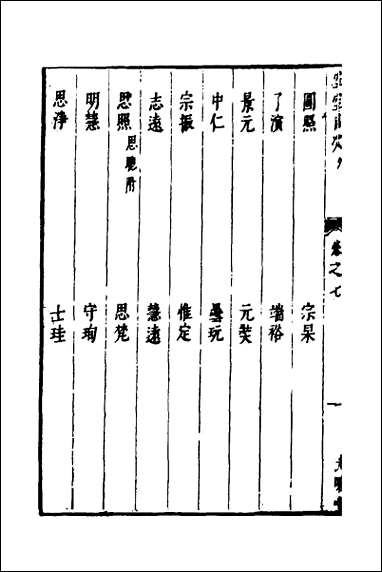 卷之七
圓照 宗杲
了演 端裕
景元 元奘
中仁 曇玩
宗振 惟定
志遠 慧遠
思照 思聰附 思梵
明慧 守珣
思淨 士珪